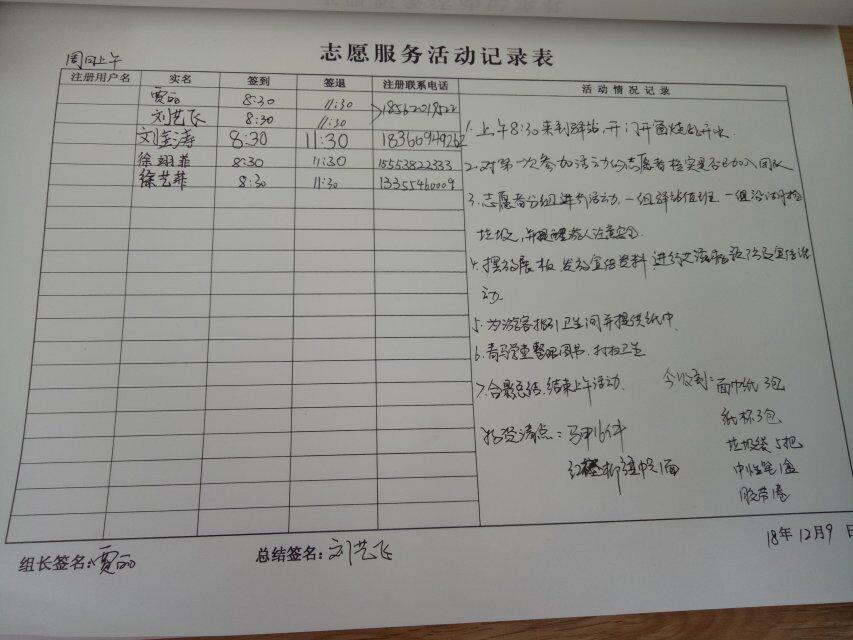 志愿服务活动记录表
周日上午
注册用户名 实名 签到 签退 注册联系电话 活动情况记录
贾丽 8:30 11:30 18562018522
刘艺飞 8:30 11:30
刘金涛 8:30 11:30 18366949262
徐翊菲 8:30 11:30 15553822333
徐艺菲 8:30 11:30 13355460009
1. 上午8:30来到驿站,开门开窗烧开水.
2. 对第一次参加活动的志愿者核实是否已加入团队
3. 志愿者分组进行活动,一组驿站值班,一组沿湖捡
垃圾,并提醒游人注意安全.
4. 摆放展板,发放宣传资料,进行艾滋病预防及宣传活
动
5. 为游客指引卫生间并提供纸巾.
6. 青马学堂整理图书,打扫卫生
7. 合影总结,结束上午活动.
今收到:面巾纸3包
纸杯3包
垃圾袋5把
中性笔1盒
胶带1卷
物资清点:马甲16件
1面
组长签名:贾丽
总结签名:刘艺飞
18年12月9日